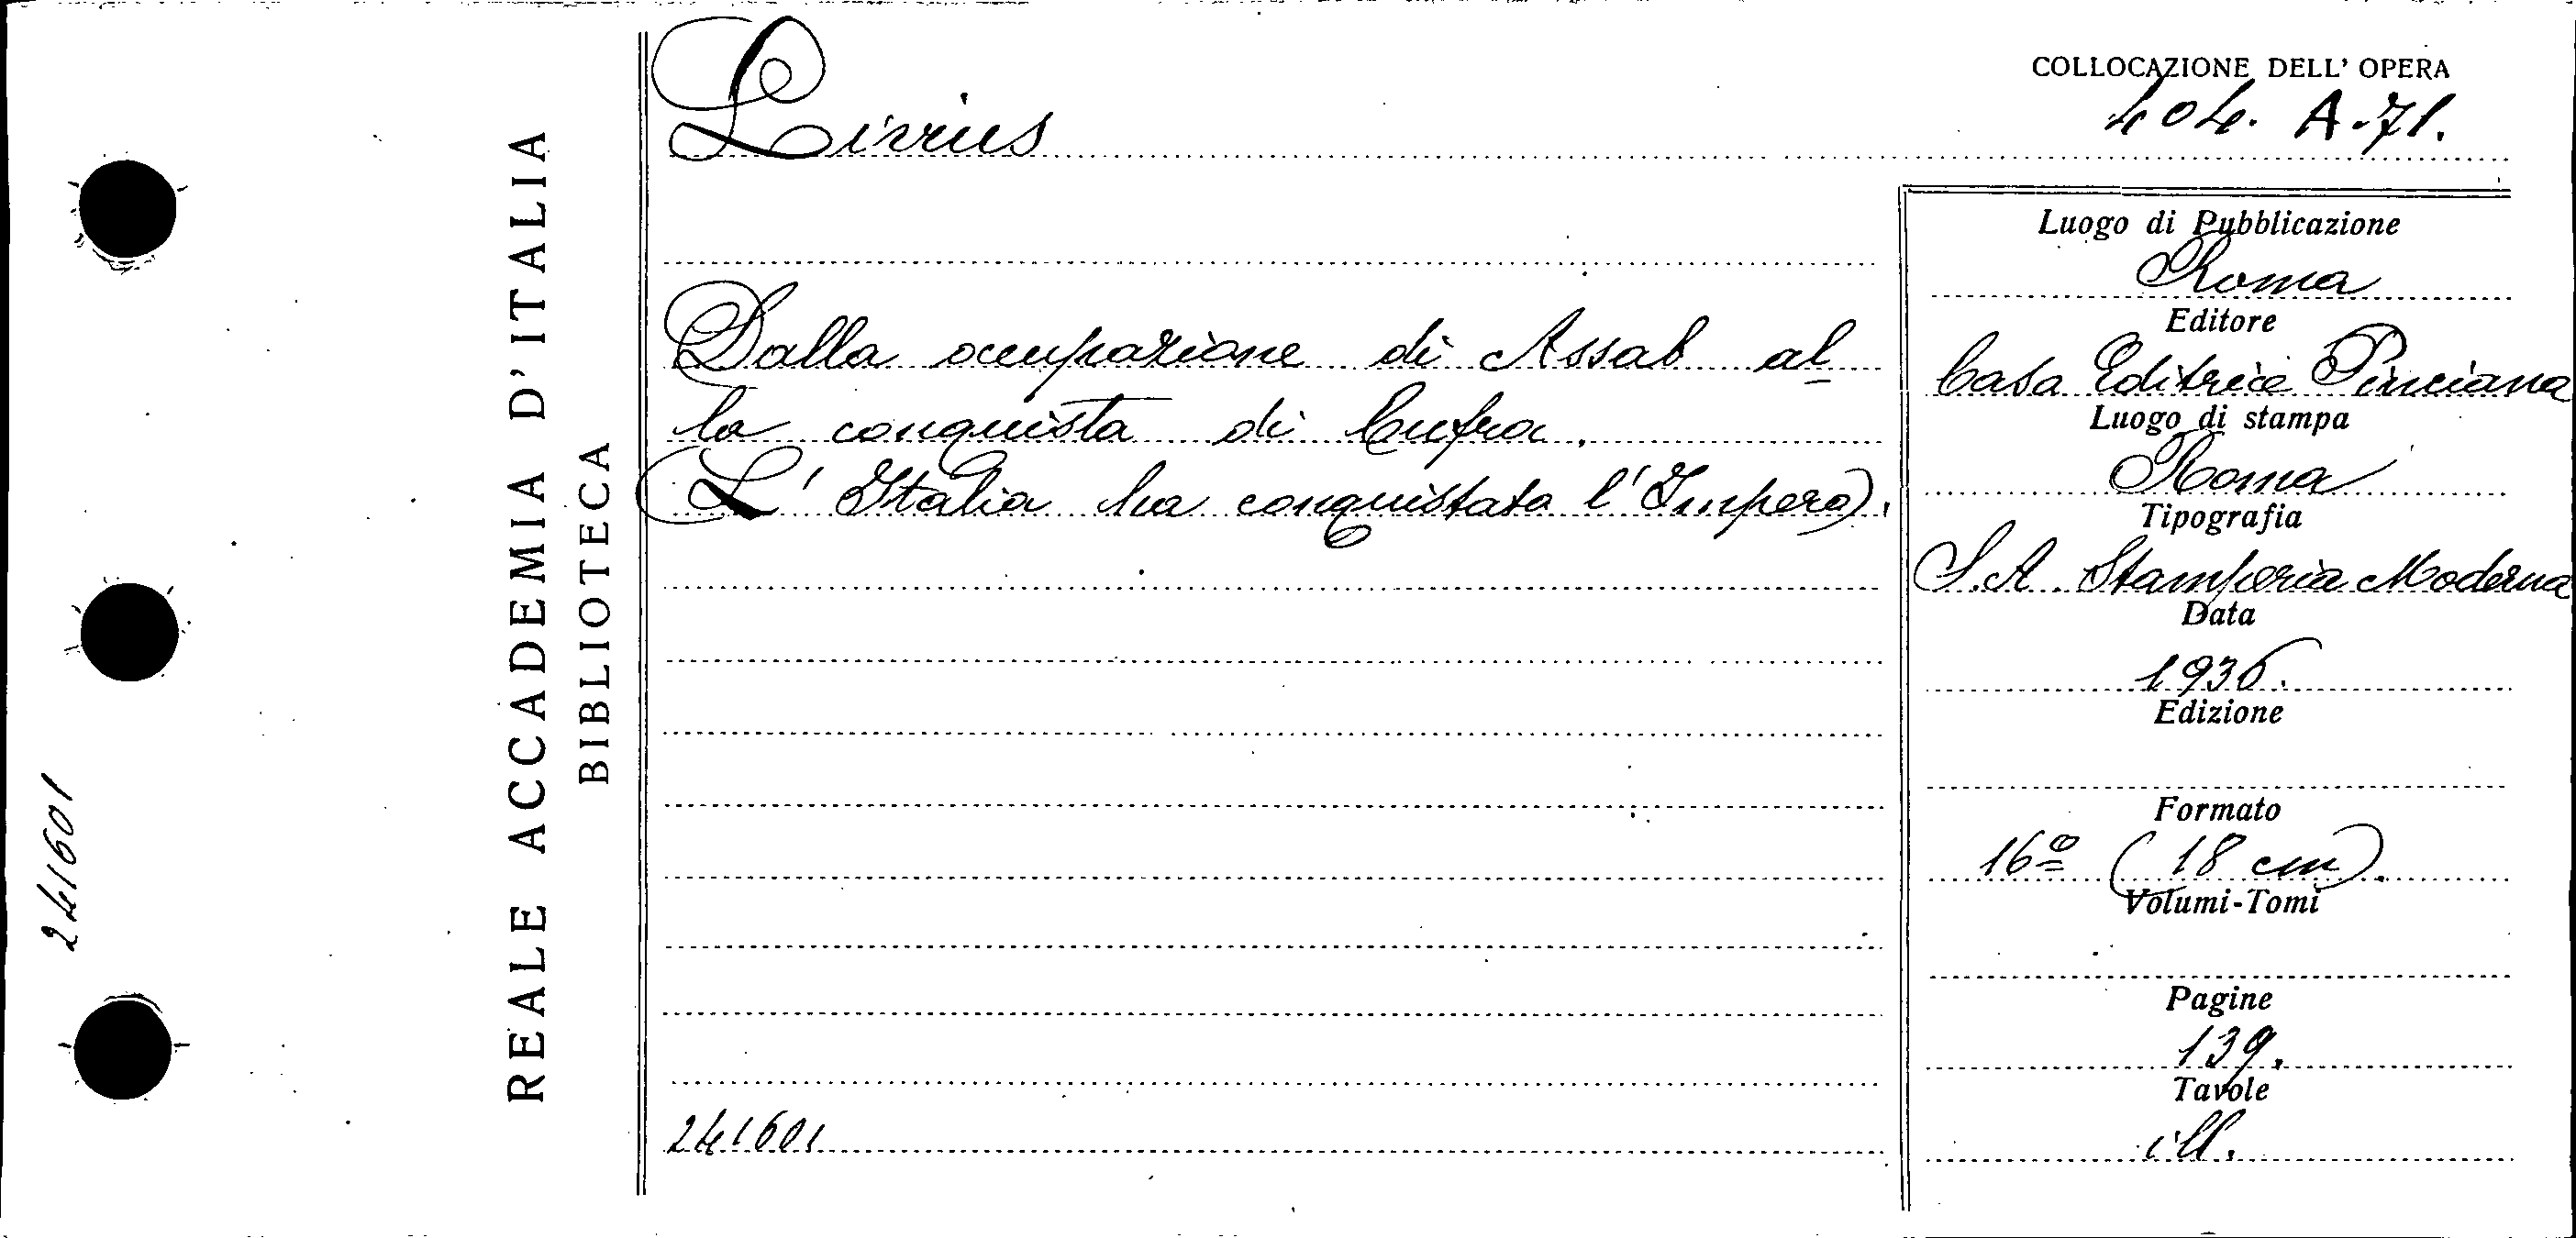 241601
REALE ACCADEMIA D'ITALIA
BIBLIOTECA
Livius
Dalla occupazione di Assab al-
la conquista di Cufra.
(L' Italia ha conquistato l' Impero).
241601
COLLOCAZIONE DELL' OPERA
404. A. 71.
Luogo di Pubblicazione
Roma
Editore
Casa Editrice Pinciana
Luogo di stampa
Roma
Tipografia
S. A. Stamperia Moderna
Data
1936.
Edizione
Formato
16º (18 cm).
Volumi-Tomi
Pagine
139.
Tavole
ill.